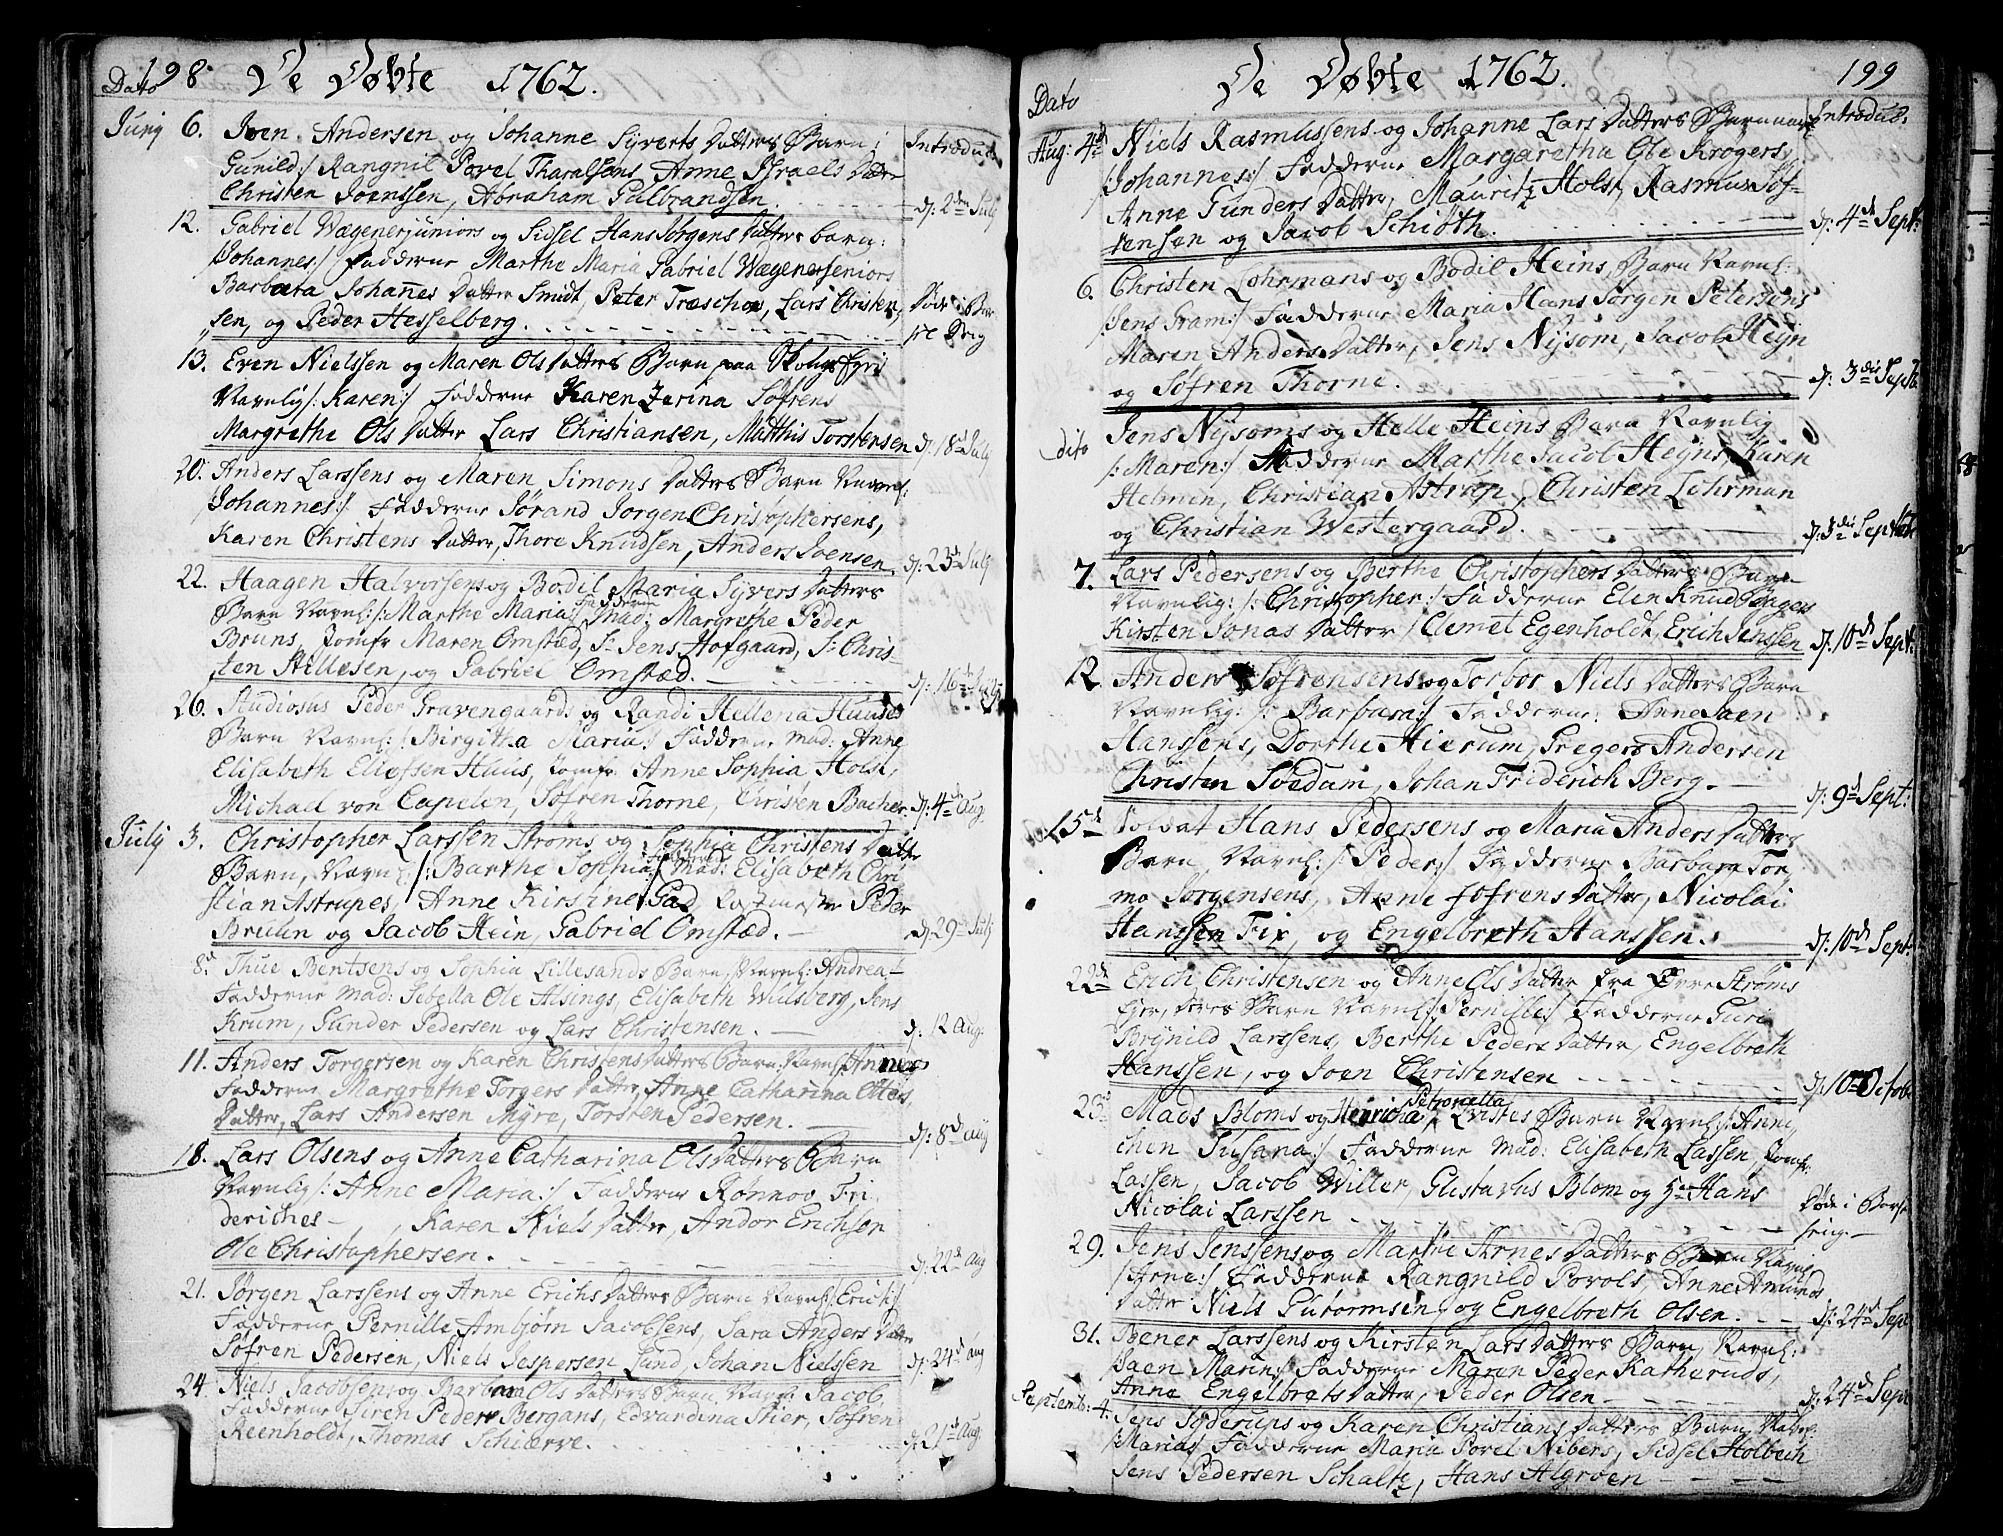 198 De Døbte 1762.
Dato
Junij 6. Joen Andersen og Johanne Syverts Datters Barn:
Gunild:/ Rangnil Povel Tharalsens Anne Israels Datter
Christen Joenssen, Abraham Gulbrandsen.
Introduct
d: 2den Julj
12. Gabriel Wægenerjuniors og Sidsel Hans Jørgens Datters barn:
/Johannes:/ Fadderne Marthe Maria Gabriel Wægenerseniors
Barbara Johannes Datter Smidt, Peter Træschow, Lars Christen
sen, og Peder Hesselberg.
Døde i Bar
sel Seng
13. Even Nielssen og Maren Ols Datters Barn paa
Navnlig /: Karen:/ Fadderne Karen Zerina Søfrens
Margrethe Ols Datter Lars Christiansen, Matthis Torstensen
d: 18d Julj
20. Anders Larssens og Maren Simons Datters Barn Navnl:
/Johannes:/ Fadderne Jørand Jørgen Christophersens,
Karen Christens Datter, Thore Knudsen, Anders Joensen.
d: 23d Julj
22. Haagen Halvorsens og Bodil Maria Syvers Datters
Barn Navnl: /: Marthe Maria: Fadderne Mad: Margrethe Peder
Bruns, Jomfr Maren Omstæd, Sr Jens Hofgaard, Sr Chris-
ten Stillesen, og Gabriel Omstæd.
d: 16d
26. Studiosus Peder Gravengaards og Randi Hellena Huuses
Barn Navnl: /: Birgitha Maria:/ Fadderne Mad: Anne
Elisabeth Eliefsen Huus, Jomfr Anne Sophia Holst,
Michael von Capelen, Søfren Thorne, Christen Bacher
d: 4d Aug.
Julij 3. Christopher Larssen Strøms og Sophia Christens Datter
Barn, Navnl: /: Barthe Sophia:/ Fadderne Mad: Elisabeth Chri
stian Astrupes, Anne Kirstine Gad, Postmester Peder
Bruun og Jacob Hein, Gabriel Omstæd.
d: 29d Julj
8d Thue Bentsens og Sophia Lillesands Barn, Navnl: Andrea
Fadderne Mad: Sebella Ole Alsings, Elisabeth Wulsberg, Jens
Krum, Gunder Pedersen og Lars Christensen.
d: 12 Aug:
11. Anders Torgersen og Karen Christens Datters Barn: Navnl: Annes
Fadderne Margrethe Torgers Datter, Anne Catharina Olles
Datter, Lars Andersen Myre, Torsten Pedersen.
d: 8d Aug
18. Lars Olsens og Anne Catharina Ols Datters Barn
Navnlig /: Anne Maria:/ Fadderne Rønnov Fri
deriches, Karen Niels Datter, Andor Erichsen
Ole Christophersen.
d: 22d Aug
21. Jørgen Larssens og Anne Erichs Datters Barn Navnl: /Erich:/
Fadderne Pernille Ambjørn Jacobsens, Sara Anders Datter
Søfren Pedersen, Niels Jespersen Lund, Johan Nielssen
d: 24d Aug
24 Niels Jacobsens og Barbara Ols Datters Barn Navnl Jacob
Fadderne Siren Peder Bergans, Edvardina Stier, Søfren
Reenholdt, Thomas Schierve.
d: 21d Aug
De Døbte 1762. 199
Dato
Introduc.
Aug: 4d Niels Rasmussens og Johanne Lars Datters Barn navnl
/Johannes:/ Fadderne Margaretha Ole Krogers,
Anne Gunders Datter, Mauritz Holst, Rasmus Søf-
rensen og Jacob Schiøth.
d: 4de Sept:
6. Christen Lohrmans og Bodil Heins, Barn Navnl:
/Jens Gram:/ Fadderne Maria Hans Jørgen Petersens
Maren Anders Datter, Jens Nysom, Jacob Heyn
og Søfren Thorne.
d: 3die Sept
dito Jens Nysoms og Helle Heins Barn Navnlig
/: Maren:/ Fadderne Marthe Jacob Heyns, Karen
Helmin, Christian Astrup, Christen Lohrman
og Christian Westergaard.
d: 3die Septemb
7. Lars Pedersens og Berthe Christophers Datters Barn
Navnlig: /: Christopher:/ Fadderne Elen Knud Bagers
Kirsten Jonas Datter Clemet Egenholdt, Erich Jenssen
d: 10d Sept:
12. Anders Søfrensens og Torbor Niels Datters Barn
Navnlig: /: Barbara:/ Fadderne: Anne Saen
Hanssens, Dorthe Hierum, Gregers Andersen
Christen Soedam, Johan Friderich Berg.
d: 9d Sept:
15d Soldat Hans Pedersens og Maria Anders Datters
Barn, Navnl: /: Peder:/ Fadderne Barbara Tor
mo Jørgensens, Anne Søfrens Datter, Nicolai
Hanssen Fix, og Engelbreth Hanssen.
d: 10d Sept:
22d Erich Christensen og Anne Ols Datter fra Øvre Strøms
Eyer, deres Barn Navnl: /Pernille:/ Fadderne Guri
Brynild Larssens, Berthe Peders Datter, Engelbreth
Hanssen, og Joen Christensen
d: 10 Octob
23d Mads Bloms og Henricha Petronella Qvistes Barn Navnl: /: Anne
chen Susana:/ Fadderne Mad: Elisabeth Lassen, Jomfr
Lassen, Jacob Willer, Gustavus Blom og Hr Hans
Nicolai Larssen
Døde i Barsel
seng.
29. Jens Jenssens og Marthe Arnes Datters Barn Navnl
/Arne:/ Fadderne Rangnild Povols, Anne Amunds
Datter Niels Guttormsen og Engelbreth Olsen.
d: 24d Sept
31. Bener Larssens og Kirsten Lars Datters Barn, Navnl:
/Saen Marin/ Fadderne Maren Peder Katheruds,
Anne Engelbrets Datter, Peder Olsen
d: 24d Sept
Septemb: 4. Jens Syderups og Karen Christians Datters Barn Navnl
/Maria:/ Fadderne Maria Povel Nibers, Sidsel Holbech
Jens Pedersen Schaltz, Hans Algrøen